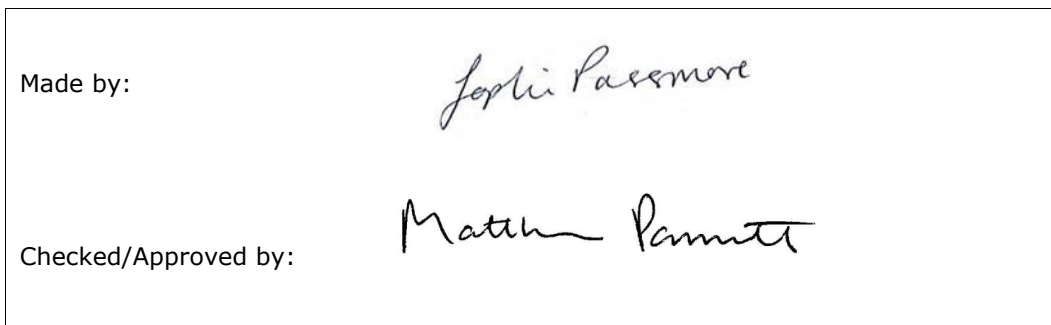 Made by:
Sophie Passmore
Checked/Approved by:
Matthew